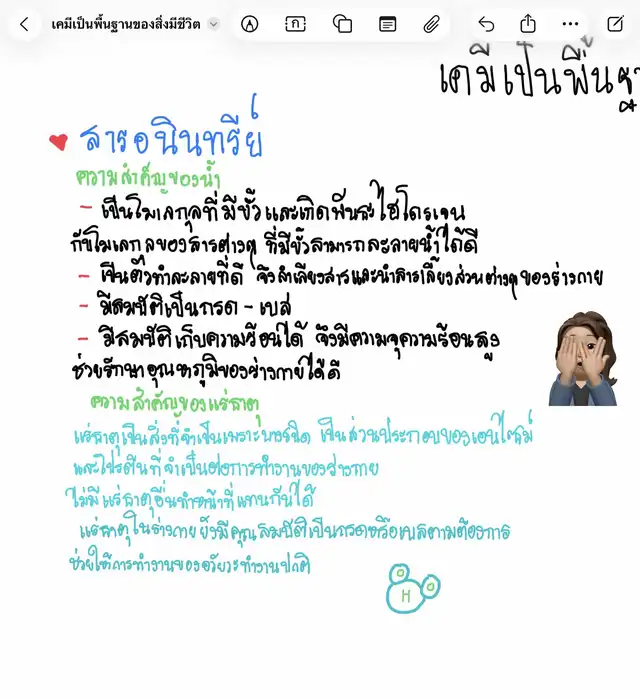 เคมีเป็นพื้นฐานของสิ่งมีชีวิต
เคมีเป็นพื้นฐา
สารอนินทรีย์
ความสำคัญของน้ำ
- เป็นโมเลกุลที่มีขั้วและเกิดพันธะไฮโดรเจน
กับโมเลกุลของสารต่างๆ ที่มีขั้วสามารถละลายน้ำได้ดี
- เป็นตัวทำละลายที่ดี จึงลำเลียงสารและนำสารเลี้ยงส่วนต่างๆของร่างกาย
- มีสมบัติเป็นกรด - เบส
- มีสมบัติเก็บความร้อนได้ จึงมีความจุความร้อนสูง
ช่วยรักษาอุณหภูมิของร่างกายได้ดี
ความสำคัญของแร่ธาตุ
แร่ธาตุเป็นสิ่งที่จำเป็นเพราะบางชนิด เป็นส่วนประกอบของเอนไซม์
และโปรตีนที่จำเป็นต่อการทำงานของร่างกาย
ไม่มีแร่ธาตุอื่นทำหน้าที่แทนกันได้
แร่ธาตุในร่างกายยังมีคุณสมบัติเป็นกรดหรือเบสตามต้องการ
ช่วยให้การทำงานของอวัยวะทำงานปกติ
O
O
H